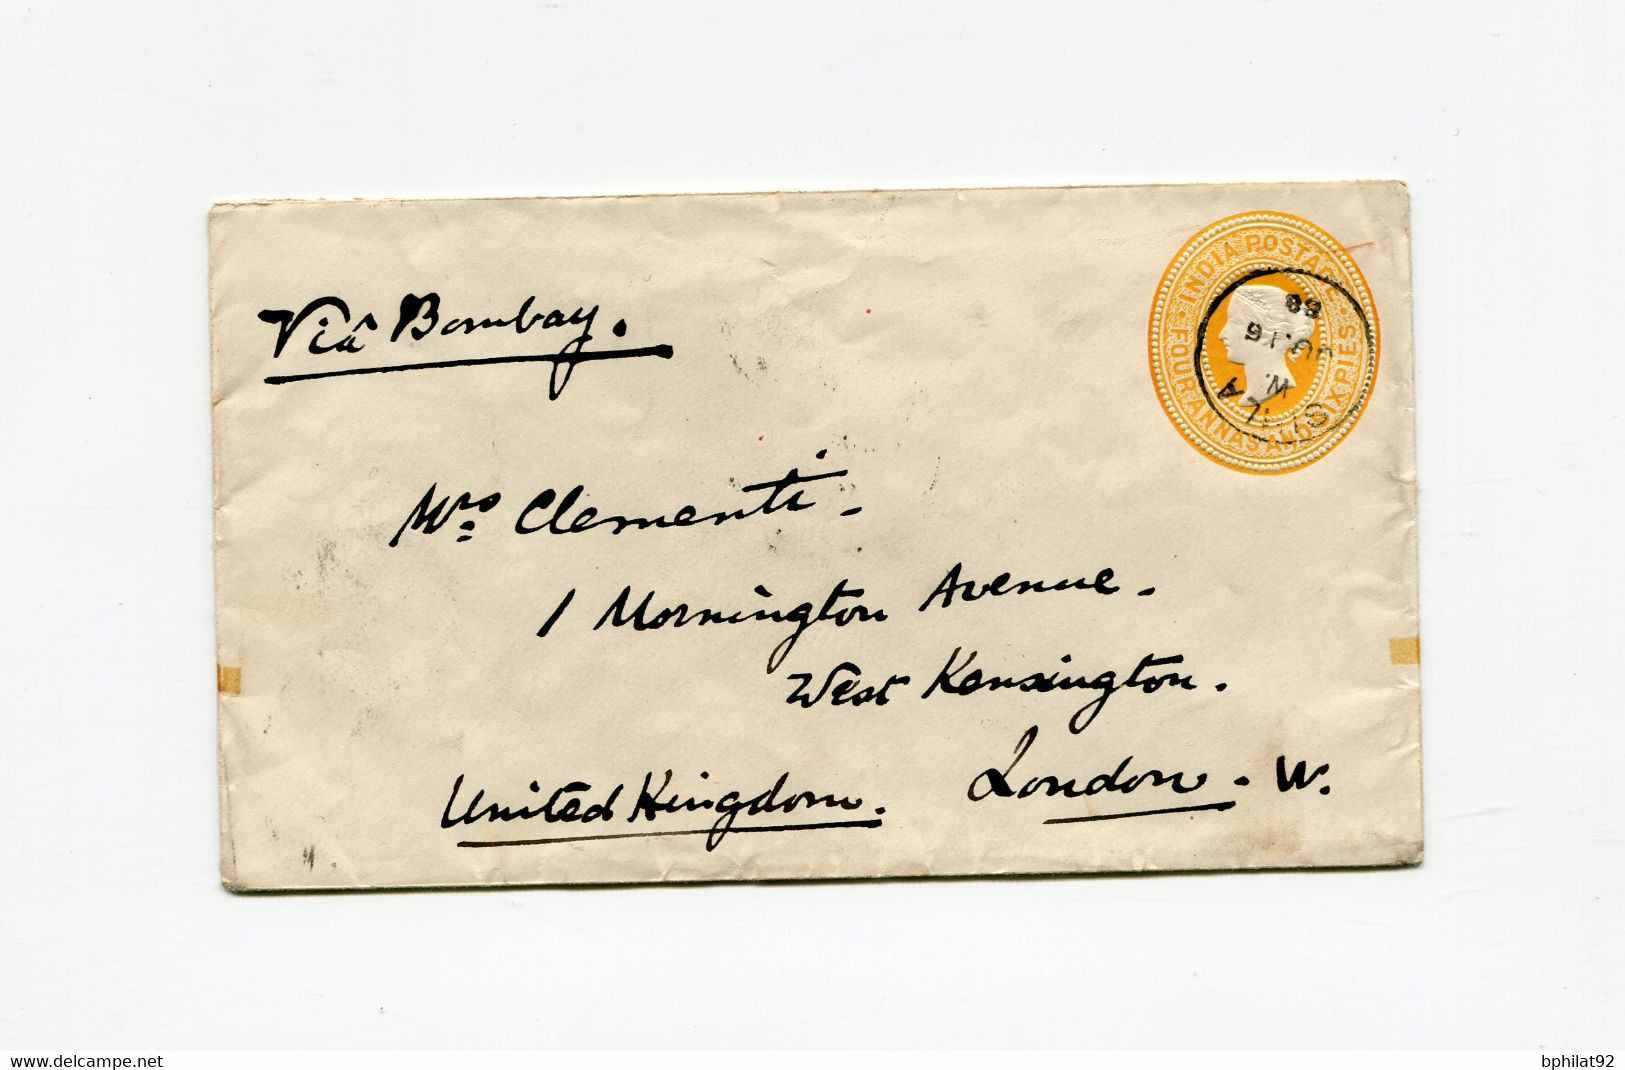 Viâ Bombay.
INDIA POSTAGE
FOUR ANNAS AND SIX PIES
SIMLA
88
Mrs. Clementi.
1 Mornington Avenue.
West Kensington.
London. W.
United Kingdom.
delcampe.net
bphilat92